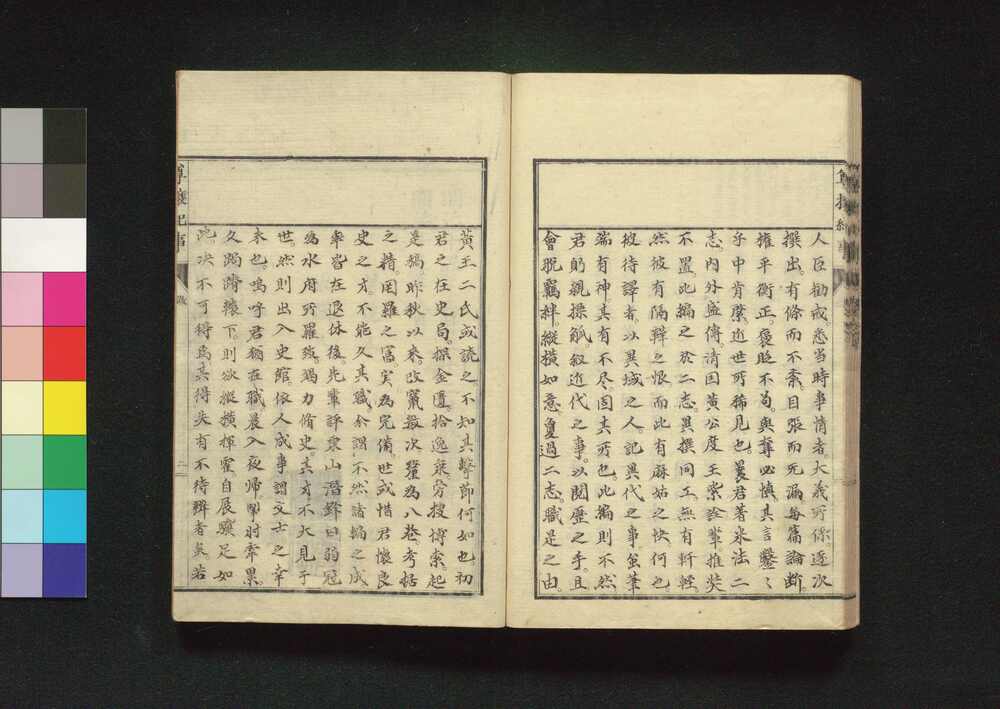 人臣勧戒悉当時事情者大義所係逐次
撰出。有條而不紊。目張而无漏。每篇論断。
權平衡正。褒貶不苟。與奪必慎。其言鑿々
乎中肯綮。近世所稀見也。曩君著米法二
志。内外盛傳。清国黄公度王紫詮輩推奖
不置。此編之於二志。異撰同工。無有軒輊。
然彼有隔靴之恨。而此有麻姑之快何也
彼待譯者。以異域之人。記異代之事。筆
端有神。其有不尽。固其所也。此編則不然
君躬親操觚。叙近代之事。以閲歴之手。且
會脱羈絆。縱横如意。夐過二志。職是之由。
黄王二氏或読之。不知其擊節何如也。初
君之在史局。探金匱。拾逸乘。旁搜博索。起
是稿。昨秋以来。改竄数次。釐為八巻。考據
之精。网羅之富。実為完備。世或惜君懐良
史之才。不能久其職。余謂不然。諸編之成
率皆在退休後。先輩評東山潜鋒曰。弱冠
為水府所羅致。竭力脩史。其才不大見于
世。然則出入史館。依人成事。謂文士之幸
未也。嗚呼君猶在職。晨入夜帰。
久跼蹐轅下。則欲縱横揮霍自展驥足如
此。決不可得焉。其得失有不待辯者矣。若
尊攘紀事